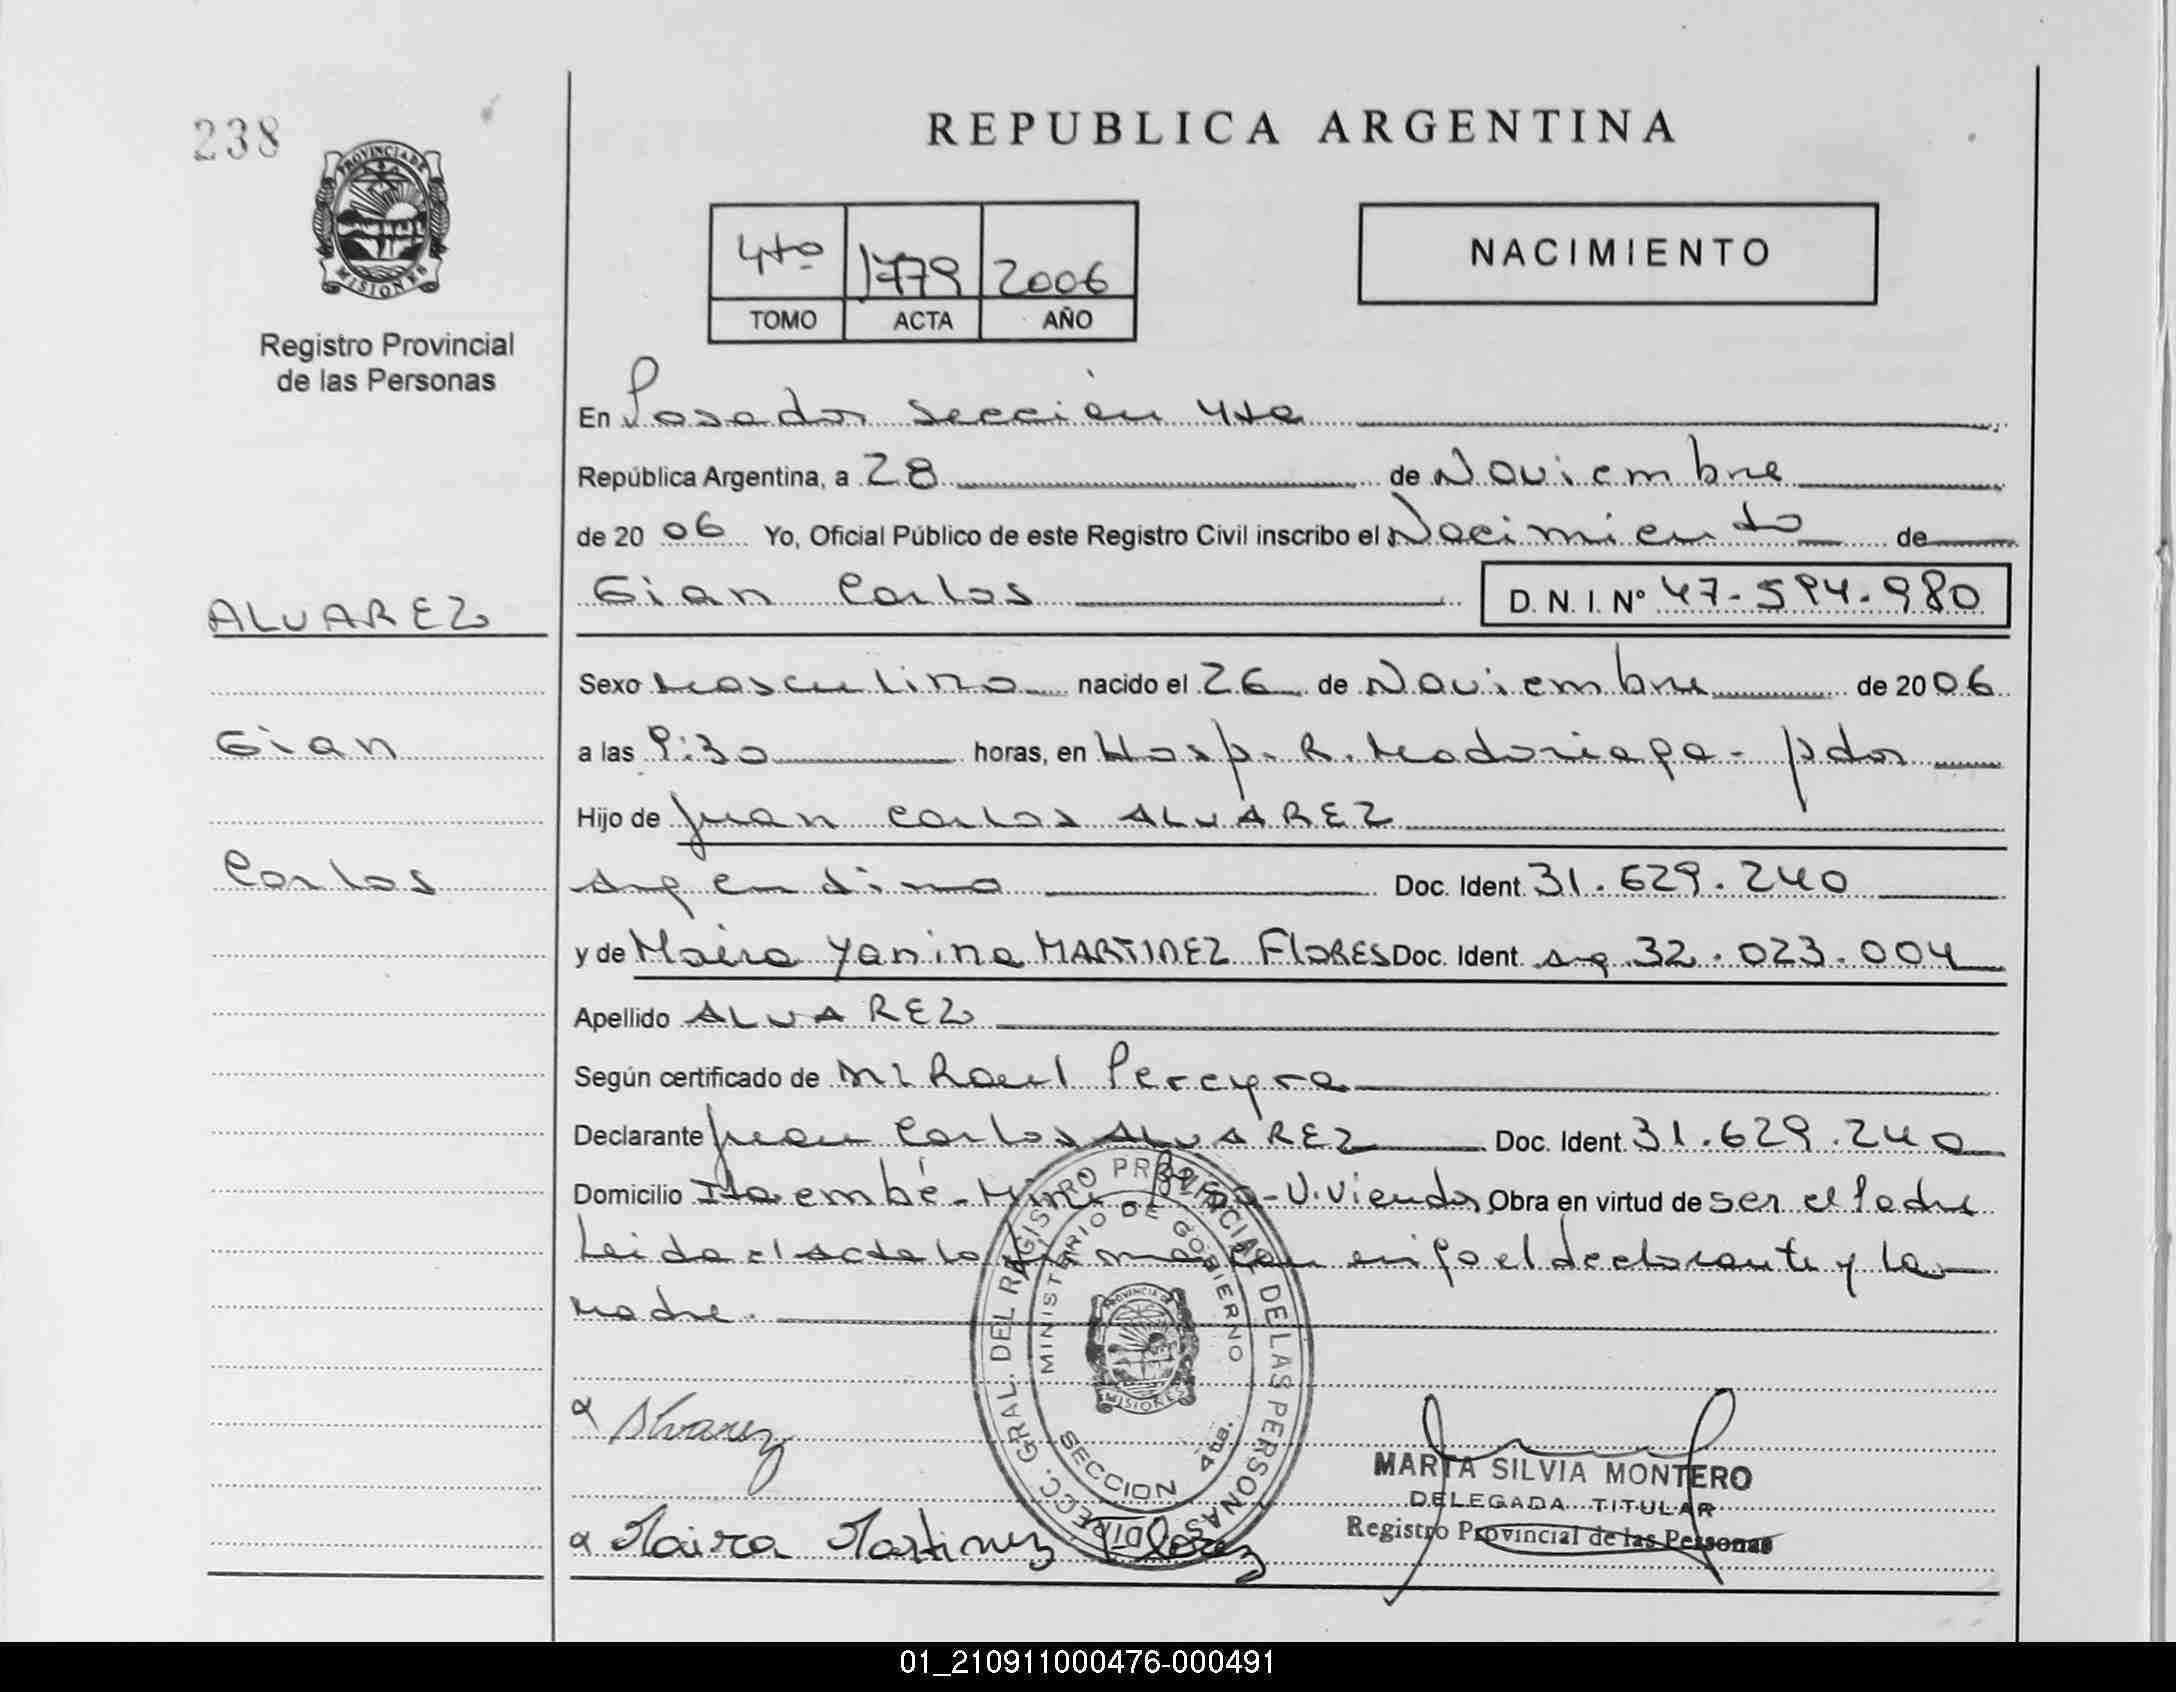 238
PROVINCIA DE
MISIONES
Registro Provincial
de las Personas
REPUBLICA ARGENTINA
4to 1779 2006
TOMO ACTA AÑO
NACIMIENTO
En Posadas sección 4ta
República Argentina, a 28 de Noviembre
de 20 06 Yo, Oficial Público de este Registro Civil inscribo el Nacimiento de
Gian Carlos D. N. I. Nº 47.594.980
ALVAREZ
Gian
Carlos
Sexo Masculino nacido el 26 de Noviembre de 20 06
a las 9:30 horas, en Hosp. R. Madariaga - Pdas
Hijo de Juan Carlos ALVAREZ
Argentino Doc. Ident. 31.629.240
y de Maira Yanina MARTINEZ FLORES Doc. Ident. Arg 32.023.004
Apellido ALVAREZ
Según certificado de Raul Pereyra
Declarante Juan Carlos ALVAREZ Doc. Ident. 31.629.240
Domicilio Itaembé - Mini - Viviendas Obra en virtud de ser el Padre
Leida el acta la firman conmigo el declarante y la
madre.
DIRECC. GRAL. DEL REGISTRO PROVINCIAL DE LAS PERSONAS
MINISTERIO DE GOBIERNO
PROVINCIA DE
MISIONES
SECCION 4ta.
Alvarez
Maira Martinez Flores
MARTA SILVIA MONTERO
DELEGADA TITULAR
Registro Provincial de las Personas
01_210911000476-000491